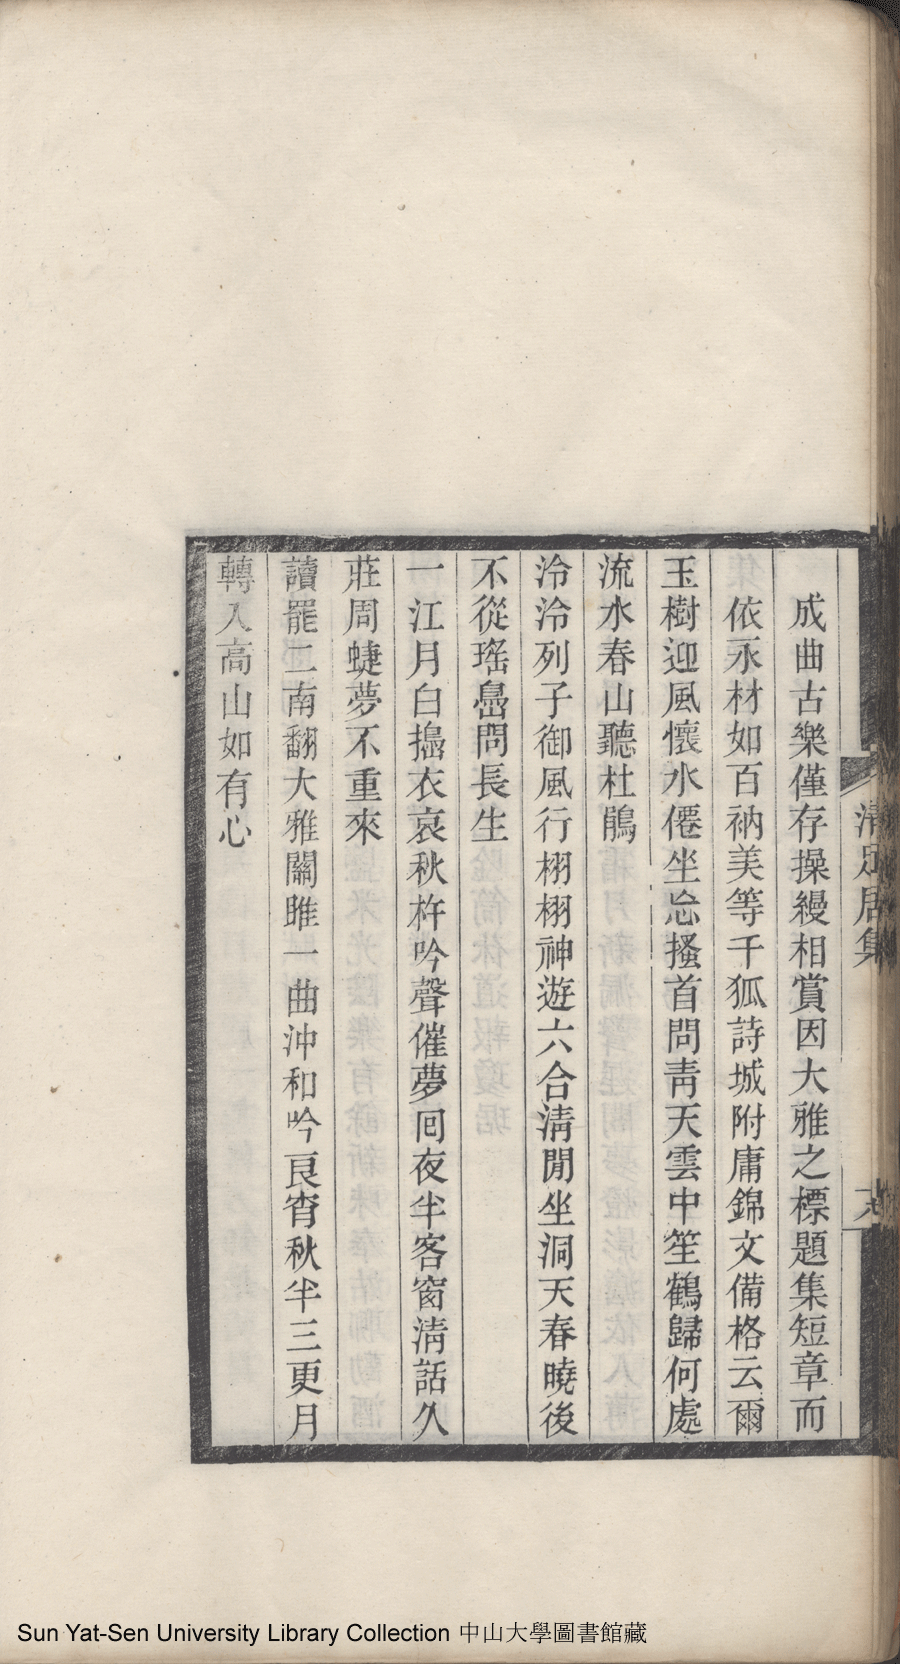 清足居集
六
成曲古樂僅存操縵相賞因大雅之標題集短章而
依永材如百衲美等千狐詩城附庸錦文備格云爾
玉樹迎風懷水僊坐忘搔首問青天雲中笙鶴歸何處
流水春山聽杜鵑
泠泠列子御風行栩栩神遊六合清閒坐洞天春曉後
不從瑤嶴問長生
一江月白搗衣哀秋杵吟聲催夢囘夜半客窗清話久
莊周蜨夢不重來
讀罷二南翻大雅關雎一曲沖和吟良宵秋半三更月
轉入高山如有心
Sun Yat-Sen University Library Collection 中山大學圖書館藏